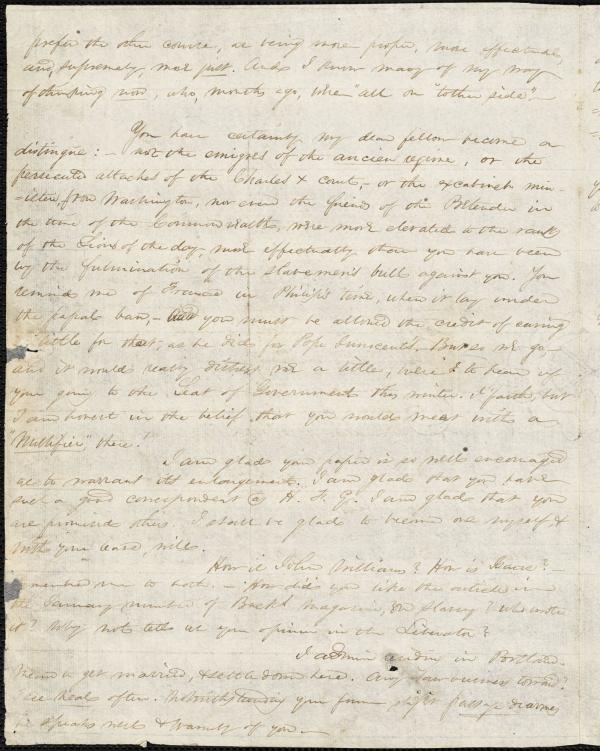 prefer the other course, as being more proper, more effectual,
and, supremely, more just. And I know many of my way
of thinking now, who, months ago, were "all on tother side".—
You have certainly my dear fellow become a
distingue:— not the emigres of the ancien regime, or the
persecuted attaches of the Charles X court,— or the excabinet min-
-isters from Washington, nor even the friend of the Pretender in
the time of the Commonwealth, were more elevated to the rank
of the Lions of the day, more effectually than you have been
by the fulmination of the slavemen's bull against you. You
remind me of France in Philip's time, when it lay under
the papal ban,— and you must be allowed the credit of caring
little for that, as he did for Pope Innocent's. But so we go—
and it would really distress me a little, were I to hear of
your going to the Seat of Government this winter. I'faith, but
I am honest in the belief that you would meet with a
"Nullifier" there!
I am glad your paper is so well encouraged
as to warrant its enlargement. I am glad that you have
such a good correspondent @ H. I. G. I am glad that you
are promised others. I shall be glad to become one myself &
with your leave will.
How is John Williams? How is
member me to both.— How did you like the article in
the January number of Buck's magazine, on slavery? who wrote
it? Why not tell us your opinion in the Liberator?
I am in in Portland.
mean to get married, & settle down here. Any law business
see Neal often. Notwithstanding your slight passage
he speaks well & warmly of you.—